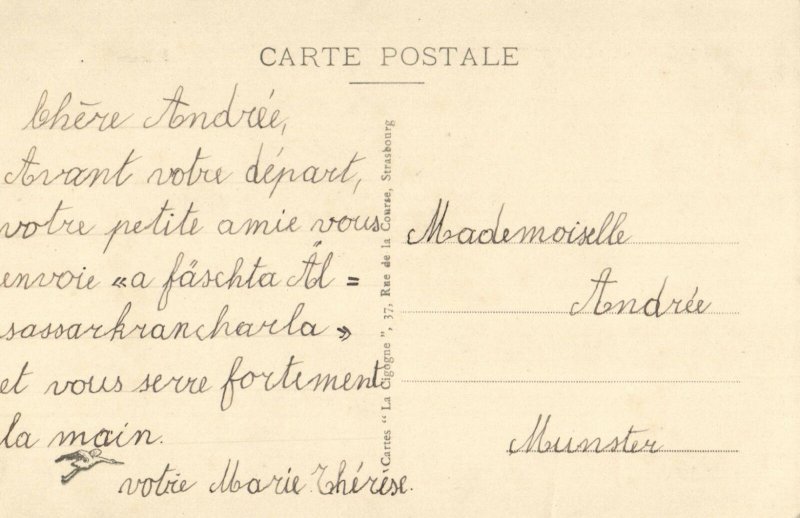 CARTE POSTALE
Chère Andrée,
Avant votre départ,
votre petite amie vous
envoie «a fäschta Äl=
sassarkrancharla»
et vous serre fortement
la main.
votre Marie Thérèse.
Cartes "La Cigogne", 37, Rue de la Course, Strasbourg
Mademoiselle
Andrée
Munster